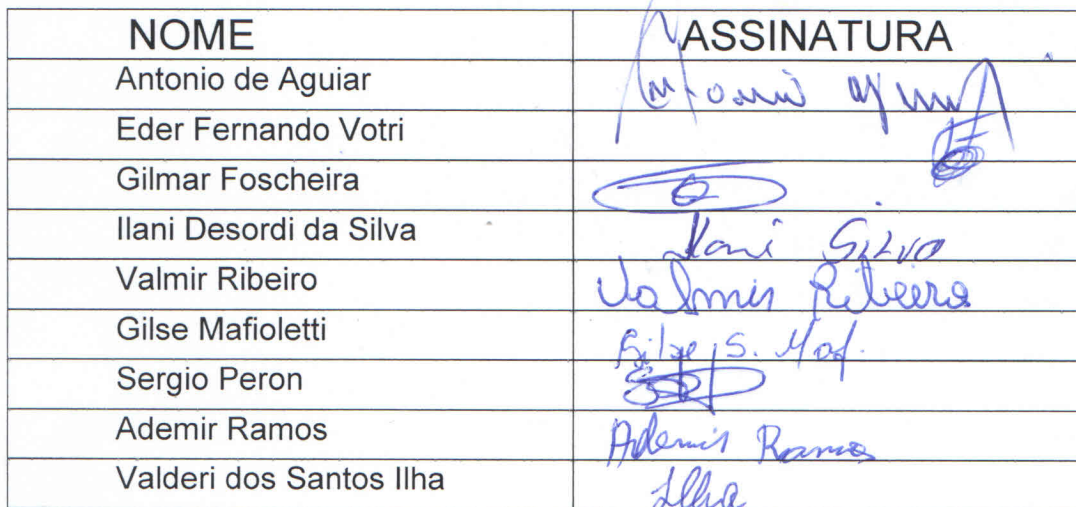 NOME ASSINATURA
Antonio de Aguiar Antonio
Eder Fernando Votri
Gilmar Foscheira
Ilani Desordi da Silva Ilani Silva
Valmir Ribeiro Valmir Ribeiro
Gilse Mafioletti Gilse S. Maf.
Sergio Peron
Ademir Ramos Ademir Ramos
Valderi dos Santos Ilha Ilha